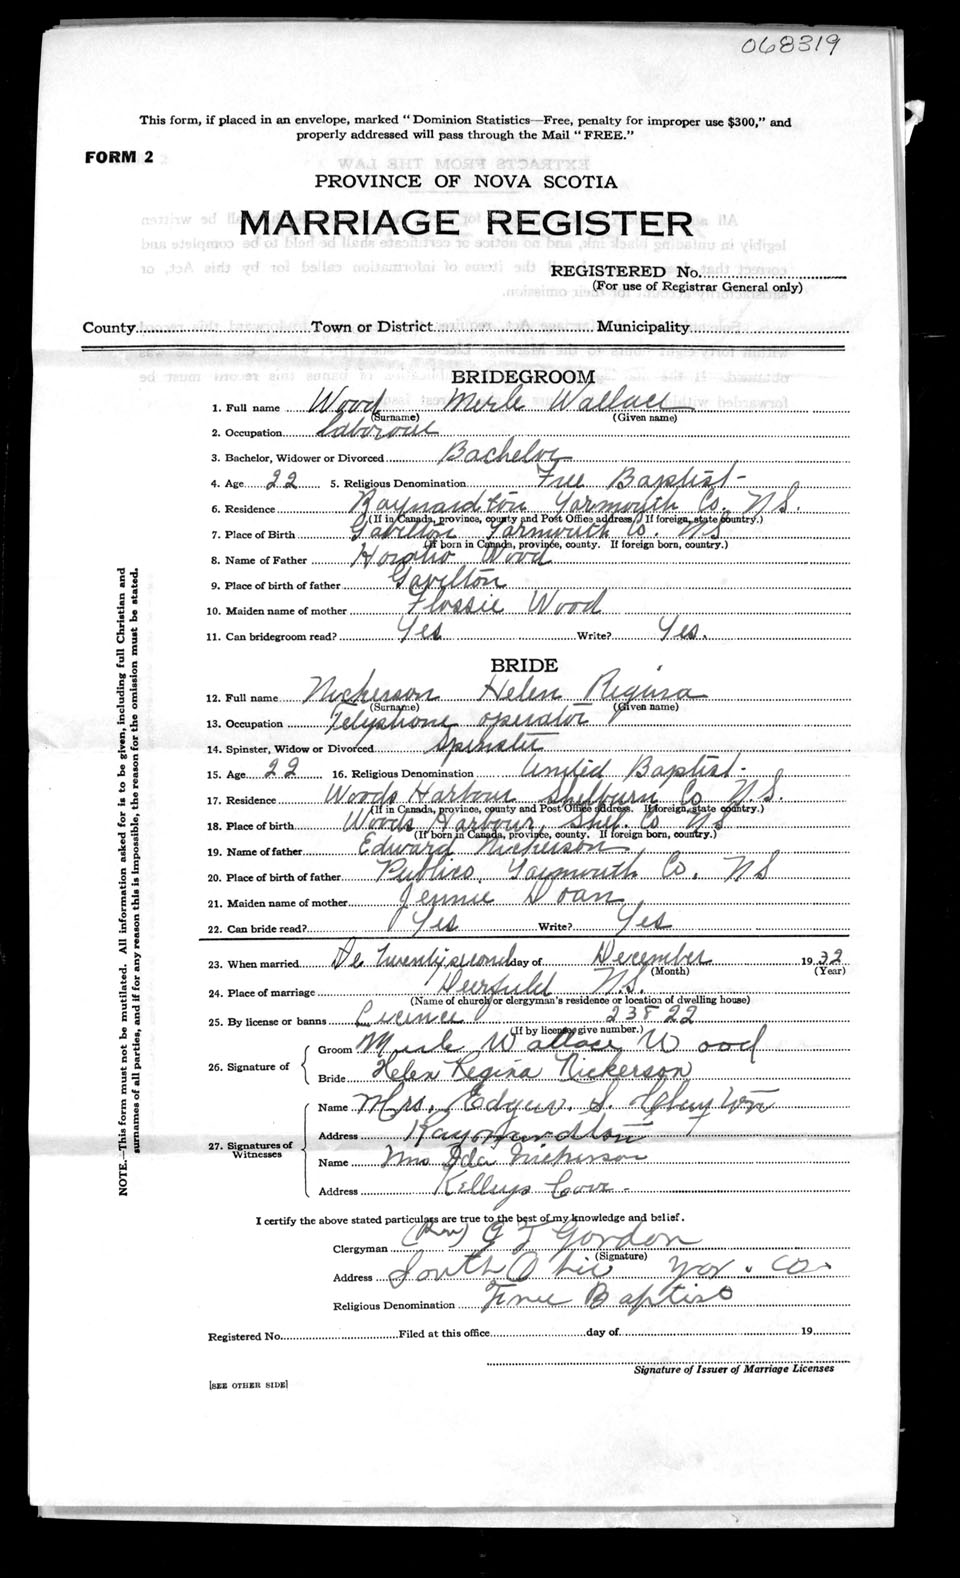 068319
This form, if placed in an envelope, marked "Dominion Statistics—Free, penalty for improper use $300," and
properly addressed will pass through the Mail "FREE."
FORM 2
PROVINCE OF NOVA SCOTIA
MARRIAGE REGISTER
REGISTERED No.
(For use of Registrar General only)
County Town or District Municipality
BRIDEGROOM
1. Full name Wood Merle Wallace
(Surname) (Given name)
2. Occupation Labourour
3. Bachelor, Widower or Divorced Bachelor
4. Age 22 5. Religious Denomination Free Baptist-
6. Residence Raynardton Yarmouth Co. N.S.
(If in Canada, province, county and Post Office address. If foreign, state country.)
7. Place of Birth Gavelton Yarmouth Co. NS
(If born in Canada, province, county. If foreign born, country.)
8. Name of Father Horatio Wood
9. Place of birth of father Gavelton
10. Maiden name of mother Flossie Wood
11. Can bridegroom read? Yes Write? Yes.
BRIDE
12. Full name Nickerson Helen Regina
(Surname) (Given name)
13. Occupation Telephone operator
14. Spinster, Widow or Divorced Spinster
15. Age 22 16. Religious Denomination United Baptist-
17. Residence Woods Harbour Shelburn Co N.S.
(If in Canada, province, county and Post Office address. If foreign, state country.)
18. Place of birth Woods Harbour, Shel. Co NS
(If born in Canada, province, county. If foreign born, country.)
19. Name of father Edward Nickerson
20. Place of birth of father Pubnico, Yarmouth Co. NS
21. Maiden name of mother Jennie Doan
22. Can bride read? Yes Write? Yes
23. When married De Twenty second day of December 1932
(Month) (Year)
24. Place of marriage Deerfield N.S.
(Name of church or clergyman's residence or location of dwelling house)
25. By license or banns Licence 23822
(If by license give number.)
26. Signature of
Groom Merle Wallace Wood
Bride Helen Regina Nickerson
27. Signatures of Witnesses
Name Mrs. Edgar. S.
Address Raynardton
Name Mrs Ida Nickerson
Address Kellys Cove-
I certify the above stated particulars are true to the best of my knowledge and belief.
Clergyman (Rev) G J Gordon
(Signature)
Address South Ohio Yar. Co.
Religious Denomination Free Baptist
Registered No. Filed at this office day of 19
Signature of Issuer of Marriage Licenses
[SEE OTHER SIDE]
NOTE.—This form must not be mutilated. All information asked for is to be given, including full Christian and
surnames of all parties, and if for any reason this is impossible, the reason for the omission must be stated.